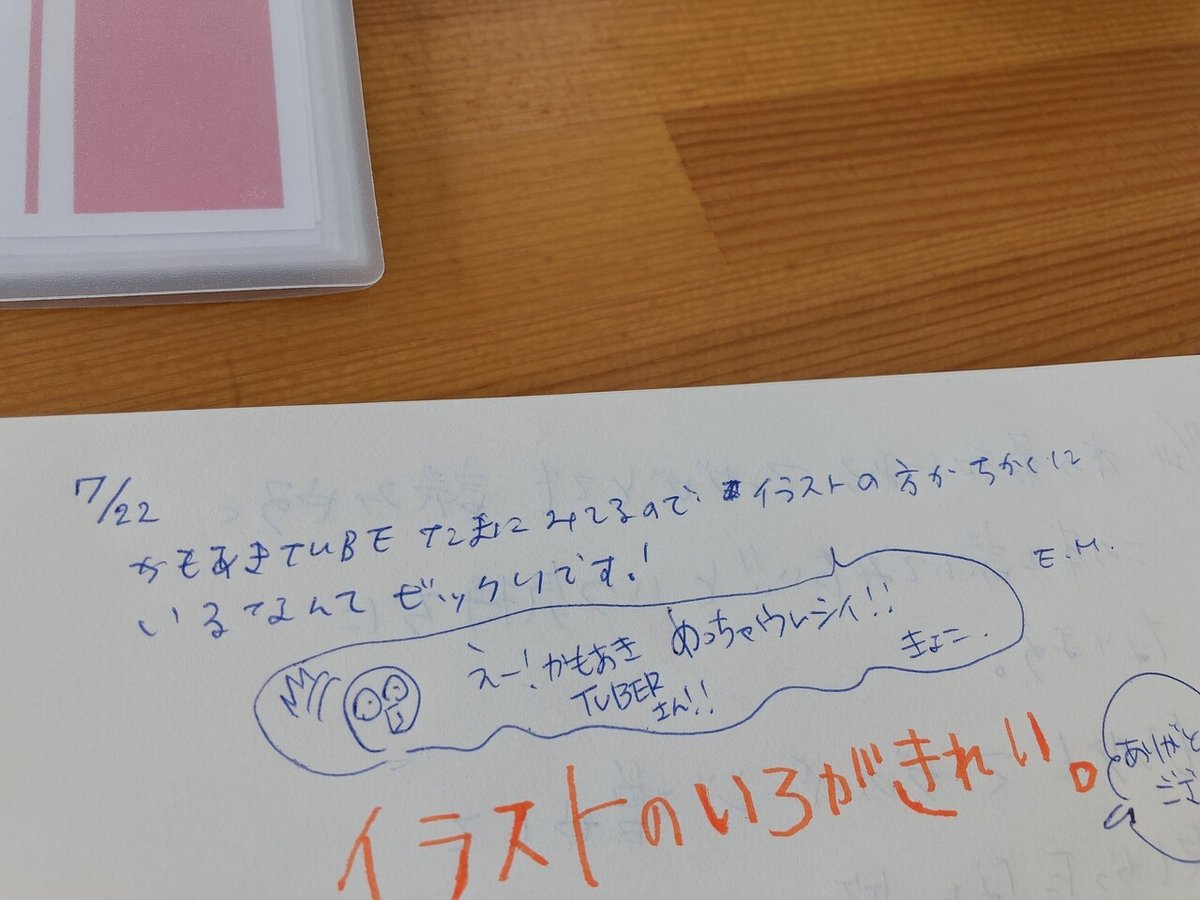 7/22
かもあきTUBEをたまにみてるので イラストの方がちかくに
いるなんてビックリです!
E.M.
えー!かもあき めっちゃウレシイ!!
TUBER
さん!!
きょこ.
イラストのいろがきれい。
ありがと
ござ